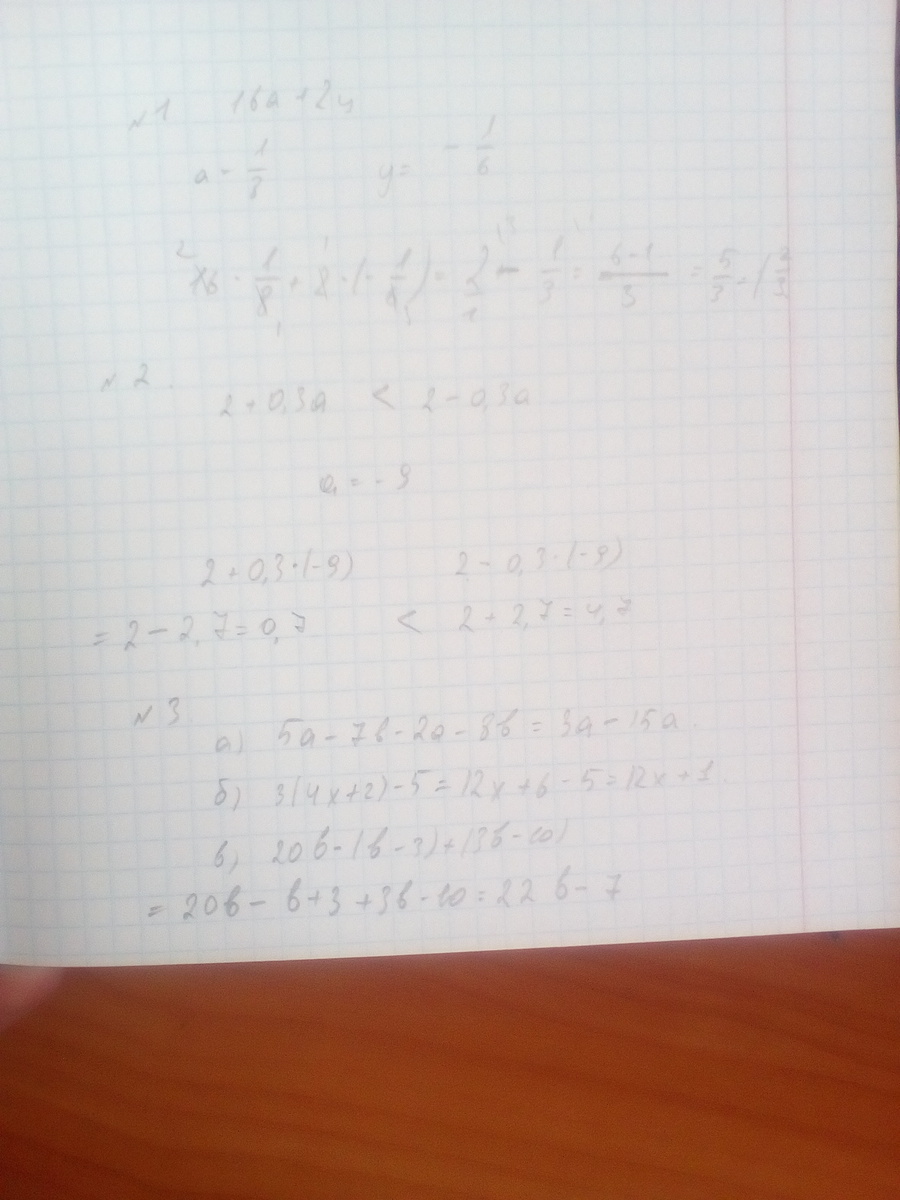 №1 16a + 2y
a = 1/8 y = - 1/6
16 · 1/8 + 2 · (- 1/6) = 2/1 - 1/3 = 6-1/3 = 5/3 =
№ 2.
2 + 0,3a < 2 - 0,3a
a = - 9
2 + 0,3·(-9) 2 - 0,3·(-9)
= 2 - 2,7 = 0,7 < 2 + 2,7 = 4,7
№ 3
а) 5a - 7b - 2a - 8b = 3a - 15a.
б) 3(4x+2) - 5 = 12x + 6 - 5 = 12x + 1.
в) 20b - (b - 3) + (3b - 10)
= 20b - b + 3 + 3b - 10 = 22b - 7